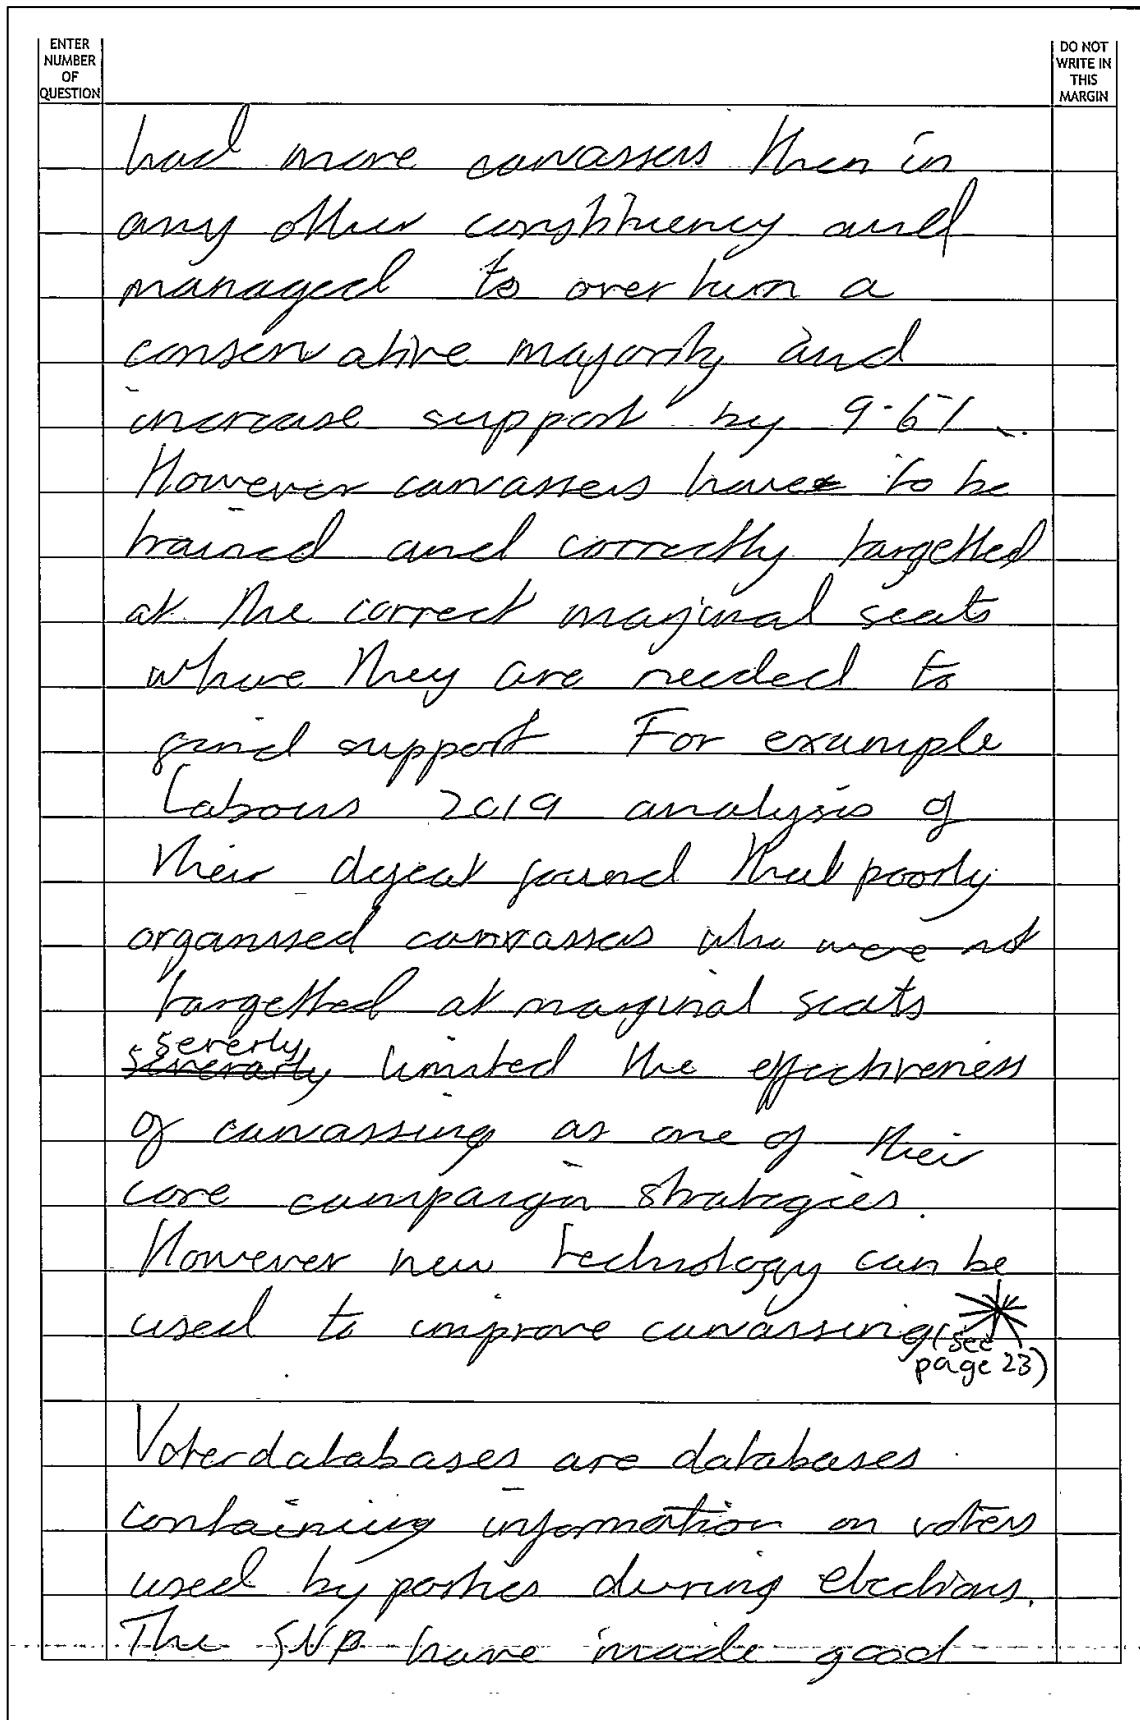 ENTER
NUMBER
OF
QUESTION
DO NOT
WRITE IN
THIS
MARGIN
had more canvassers then in
any other constituency and
managed to over turn a
conservative majority and
increase support by 9.6%.
However canvassers have to be
trained and correctly targetted
at the correct marginal seats
where they are needed to
gaind support For example
Labours 2019 analysis of
their defeat found that poorly
organised canvassers who were not
targetted at marginal seats
severly
limited the effectiveness
of canvassing as one of their
core campaign strategies.
However new technology can be
used to improve canvassing (see
page 23)
Voterdatabases are databases
containing information on voters
used by parties during elections.
The SNP have made good